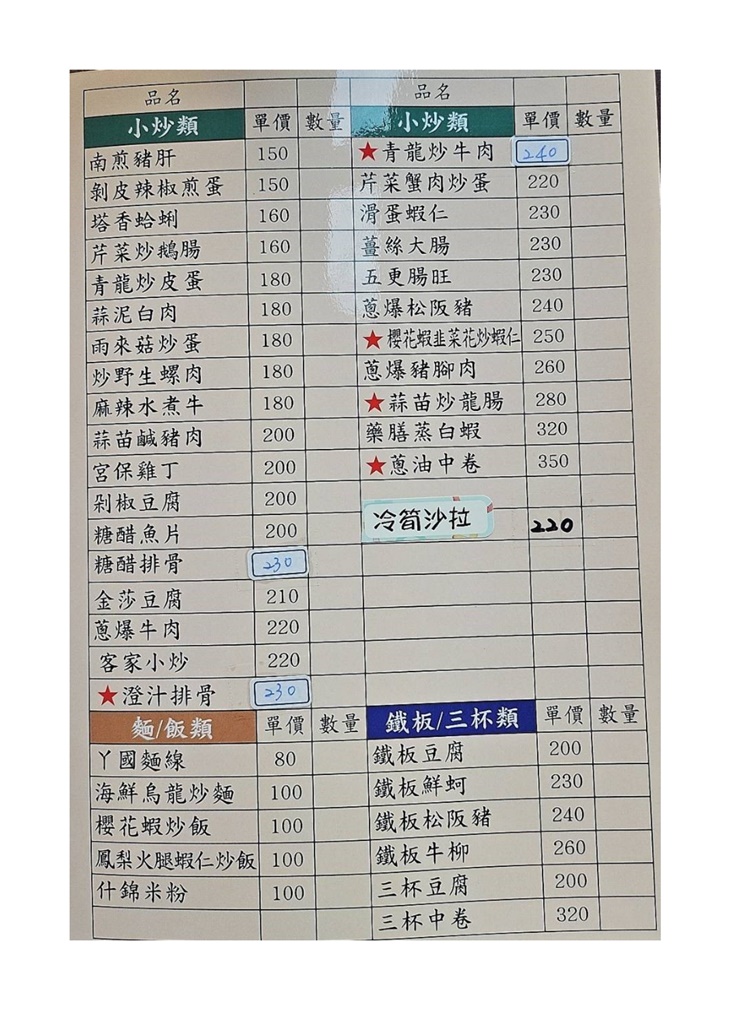 品名
小炒類 單價 數量
南煎豬肝 150
剝皮辣椒煎蛋 150
塔香蛤蜊 160
芹菜炒鵝腸 160
青龍炒皮蛋 180
蒜泥白肉 180
雨來菇炒蛋 180
炒野生螺肉 180
麻辣水煮牛 180
蒜苗鹹豬肉 200
宮保雞丁 200
剁椒豆腐 200
糖醋魚片 200
糖醋排骨 230
金莎豆腐 210
蔥爆牛肉 220
客家小炒 220
★澄汁排骨 230
麵/飯類 單價 數量
丫國麵線 80
海鮮烏龍炒麵 100
櫻花蝦炒飯 100
鳳梨火腿蝦仁炒飯 100
什錦米粉 100
品名
小炒類 單價 數量
★青龍炒牛肉 240
芹菜蟹肉炒蛋 220
滑蛋蝦仁 230
薑絲大腸 230
五更腸旺 230
蔥爆松阪豬 240
★櫻花蝦韭菜花炒蝦仁 250
蔥爆豬腳肉 260
★蒜苗炒龍腸 280
藥膳蒸白蝦 320
★蔥油中卷 350
冷筍沙拉 220
鐵板/三杯類 單價 數量
鐵板豆腐 200
鐵板鮮蚵 230
鐵板松阪豬 240
鐵板牛柳 260
三杯豆腐 200
三杯中卷 320